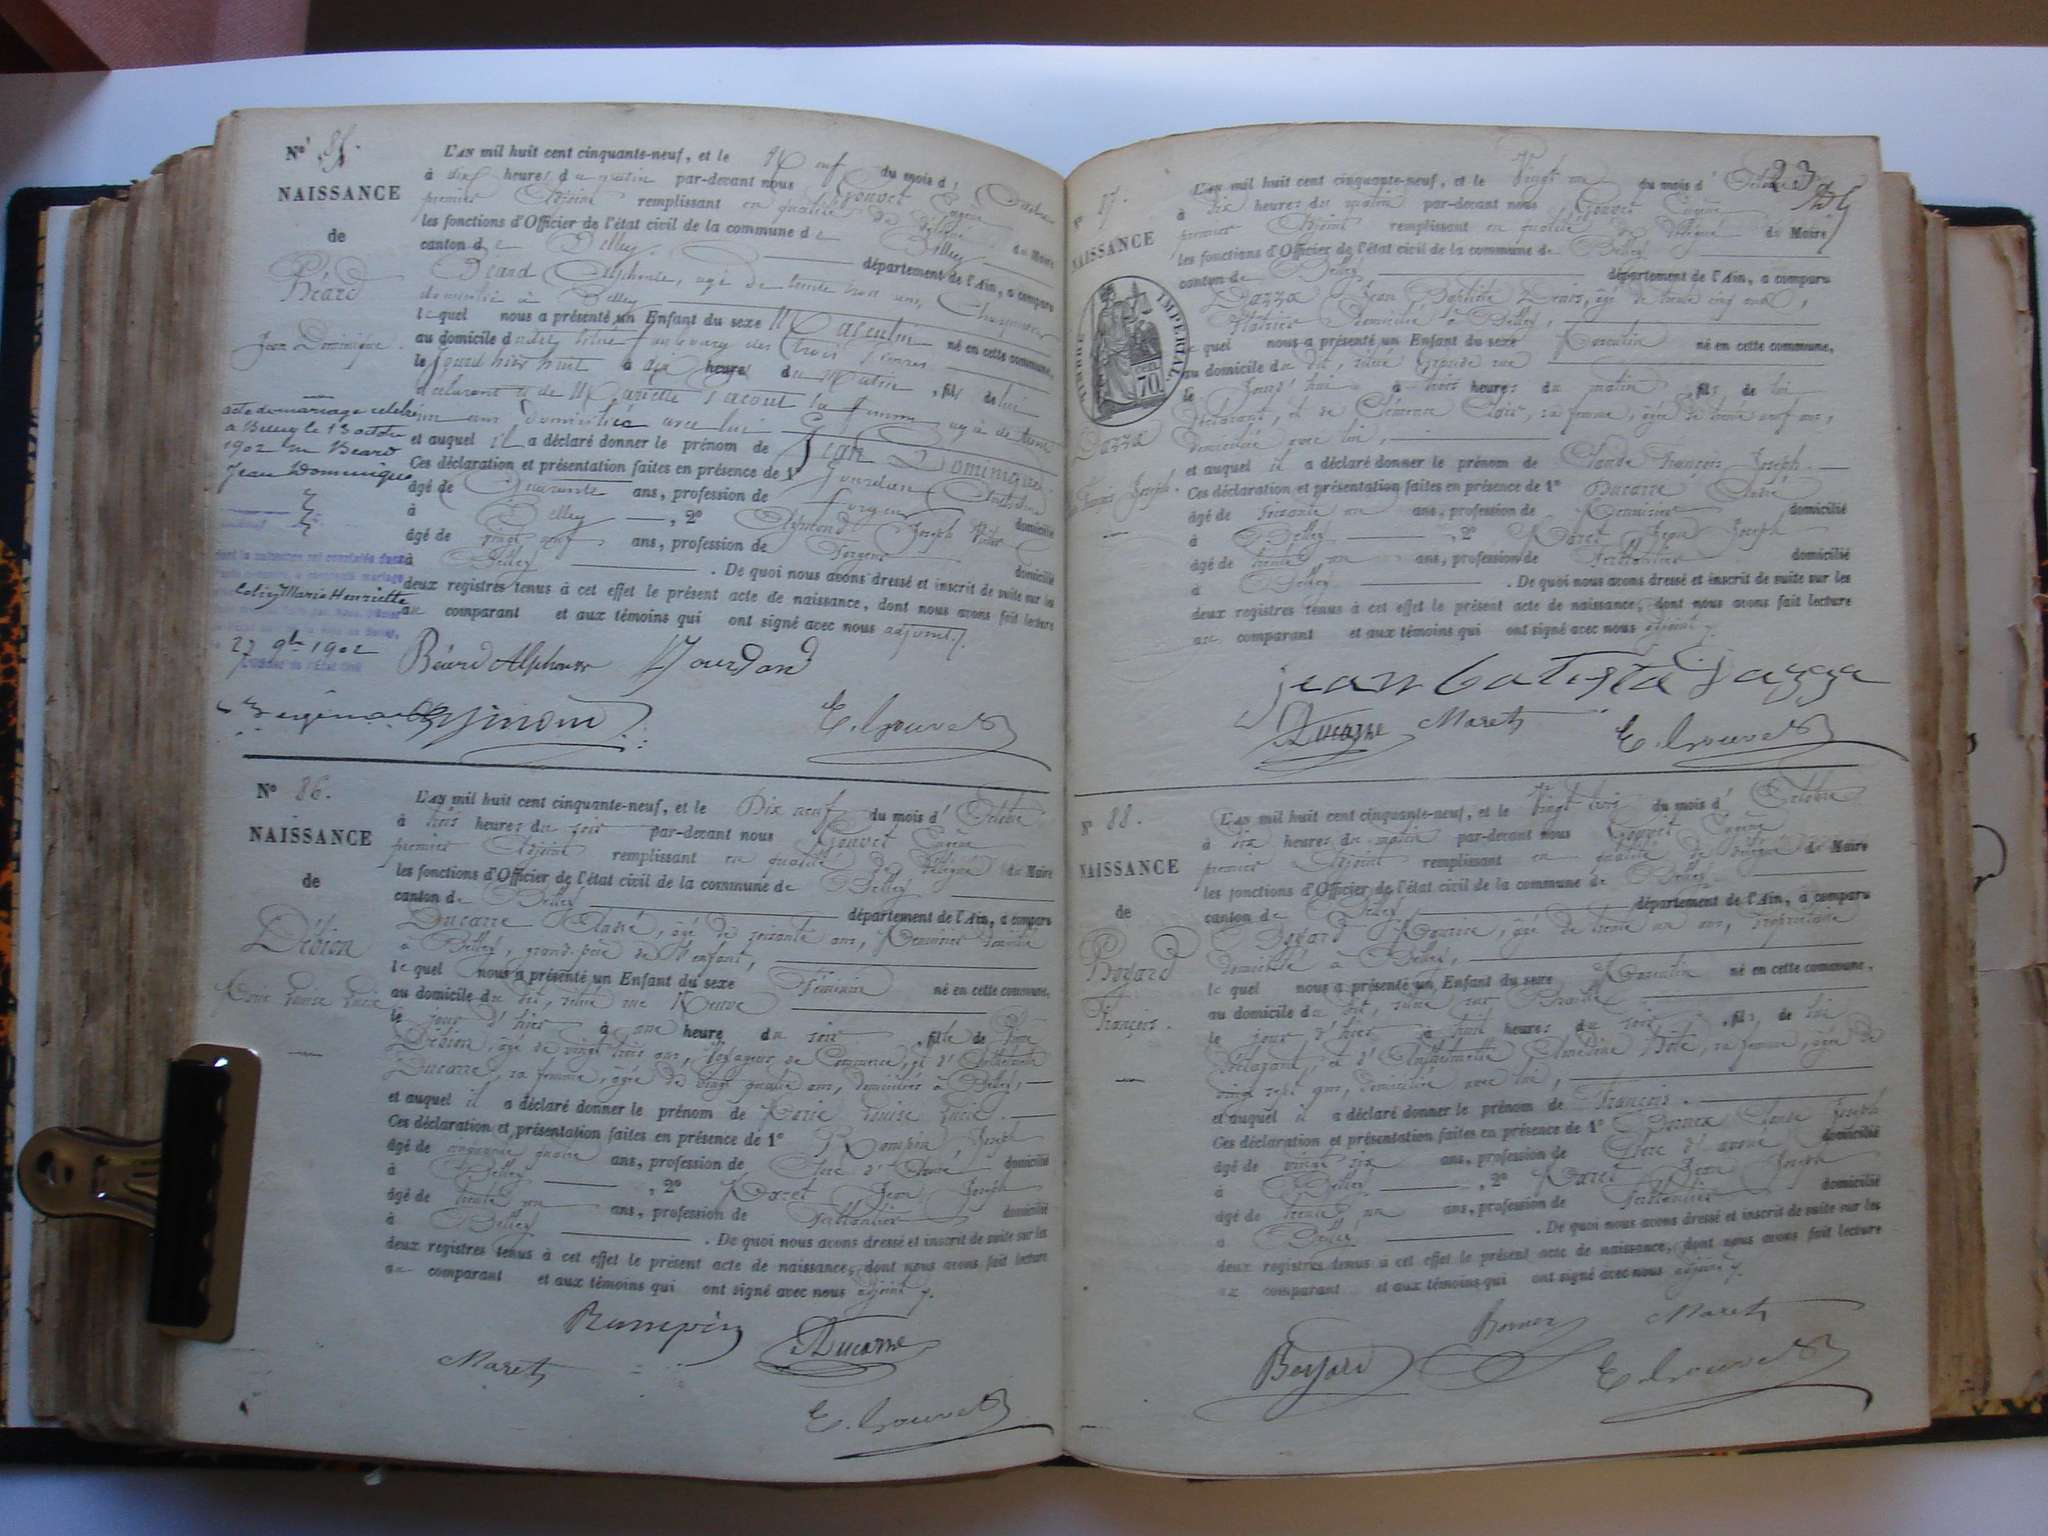 Nº 85.
NAISSANCE
de
Béard
Jean Dominique.
acte de mariage célébré
a Belley le 13 octobre
1902 Béard
Jean Dominique
Colin Marie Henriette
27 9bre 1902
L'AN mil huit cent cinquante-neuf, et le neuf du mois d'Octobre
à dix heures du matin par-devant nous Gouvet Eugène
premier Adjoint remplissant en qualité de délégué du Maire
les fonctions d'Officier de l'état civil de la commune de Belley
canton de Belley département de l'Ain, a comparu
Béard Alphonse, agé de trente trois ans,
domicilié à Belley
lequel nous a présenté un Enfant du sexe Masculin né en cette commune,
au domicile dudit, situé faubourg des
le jourd'hier huit à dix heures du Matin, fils de lui
déclarant et de Mariette sa femme, agée de trente
un ans domiciliée avec lui
et auquel il a déclaré donner le prénom de Jean Dominique.
Ces déclaration et présentation faites en présence de 1º Jourdan
âgé de Quarante ans, profession de forgeur domicilié
à Belley, 2º Joseph
âgé de vingt neuf ans, profession de Forgeur domicilié
à Belley. De quoi nous avons dressé et inscrit de suite sur les
deux registres tenus à cet effet le présent acte de naissance, dont nous avons fait lecture
au comparant et aux témoins qui ont signé avec nous adjoint.
Béard Alphonse Jourdan
E. Gouvet
Nº 86.
NAISSANCE
de
Débion
Marie Louise Lucie
L'AN mil huit cent cinquante-neuf, et le Dix neuf du mois d'Octobre
à trois heures du soir par-devant nous Gouvet Eugène
premier Adjoint remplissant en qualité de délégué du Maire
les fonctions d'Officier de l'état civil de la commune de Belley
canton de Belley département de l'Ain, a comparu
Ducarre André, âgé de soixante ans, Menuisier domicilié
à Belley, grand-père de l'enfant,
lequel nous a présenté un Enfant du sexe Féminin né en cette commune,
au domicile du dit, situé rue Neuve
le jour d'hier à une heure du soir, fille de
Débion, âgé de vingt trois ans, Voyageur de Commerce, et d'Anthelmette
Ducarre, sa femme, âgée de vingt quatre ans, domiciliés à Belley,
et auquel il a déclaré donner le prénom de Marie Louise Lucie.
Ces déclaration et présentation faites en présence de 1º Rampin, Joseph
âgé de cinquante quatre ans, profession de Clerc d'Avoué domicilié
à Belley, 2º Maret Jean Joseph
âgé de trente un ans, profession de Ferblantier domicilié
à Belley. De quoi nous avons dressé et inscrit de suite sur les
deux registres tenus à cet effet le présent acte de naissance, dont nous avons fait lecture
au comparant et aux témoins qui ont signé avec nous adjoint.
Rampin Ducarre
Maret
E. Gouvet
23
Nº 87.
NAISSANCE
TIMBRE IMPERIAL
70 cen.
Dazza
François Joseph.
L'AN mil huit cent cinquante-neuf, et le Vingt un du mois d'Octobre
à dix heures du matin par-devant nous Gouvet Eugène
premier Adjoint remplissant en qualité de délégué du Maire
les fonctions d'Officier de l'état civil de la commune de Belley
canton de Belley département de l'Ain, a comparu
Dazza Jean Baptiste Denis, âgé de trente cinq ans,
Plâtrier domicilié à Belley,
lequel nous a présenté un Enfant du sexe Masculin né en cette commune,
au domicile du dit, situé Grande rue
le Jourd'hui à trois heures du matin, fils de lui
déclarant, et de Clémence Clair, sa femme, âgée de trente neuf ans,
domiciliée avec lui,
et auquel il a déclaré donner le prénom de Claude François Joseph.
Ces déclaration et présentation faites en présence de 1º Ducarre André
âgé de soixante un ans, profession de Menuisier domicilié
à Belley, 2º Maret Jean Joseph
âgé de trente un ans, profession de Ferblantier domicilié
à Belley. De quoi nous avons dressé et inscrit de suite sur les
deux registres tenus à cet effet le présent acte de naissance, dont nous avons fait lecture
au comparant et aux témoins qui ont signé avec nous adjoint.
jean batista dazza
Ducarre Maret E. Gouvet
Nº 88.
NAISSANCE
de
Boyard
François.
L'AN mil huit cent cinquante-neuf, et le Vingt trois du mois d'Octobre
à dix heures du matin par-devant nous Gouvet Eugène
premier Adjoint remplissant en qualité de délégué du Maire
les fonctions d'Officier de l'état civil de la commune de Belley
canton de Belley département de l'Ain, a comparu
Boyard Maurice, âgé de trente un ans, propriétaire
domicilié à Belley,
lequel nous a présenté un Enfant du sexe Masculin né en cette commune,
au domicile du dit, situé rue
le jour d'hier à huit heures du soir, fils de lui
déclarant, et d'Anthelmette sa femme, âgée de
vingt sept ans, domiciliée avec lui,
et auquel il a déclaré donner le prénom de François.
Ces déclaration et présentation faites en présence de 1º Claude Joseph
âgé de vingt six ans, profession de Clerc d'avoué domicilié
à Belley, 2º Maret Jean Joseph
âgé de trente un ans, profession de Ferblantier domicilié
à Belley. De quoi nous avons dressé et inscrit de suite sur les
deux registres tenus à cet effet le présent acte de naissance, dont nous avons fait lecture
au comparant et aux témoins qui ont signé avec nous adjoint.
Maret
Boyard E. Gouvet